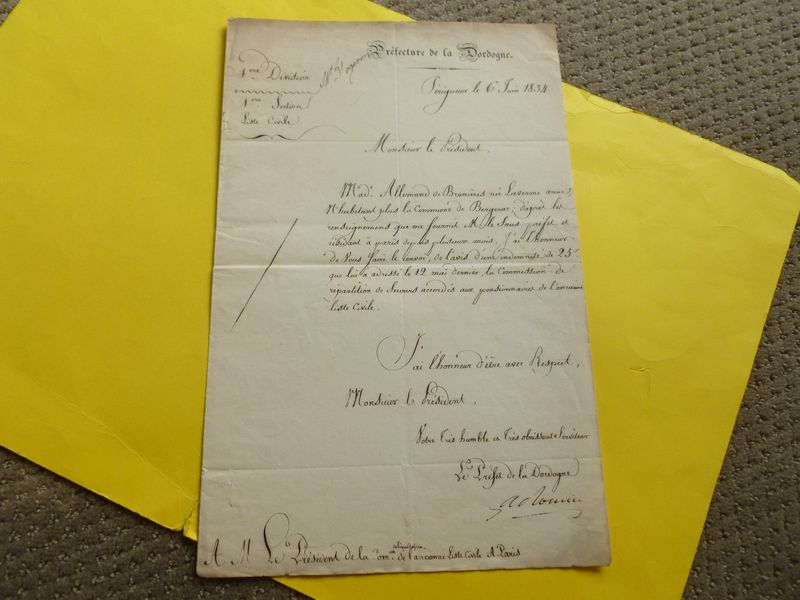 Préfecture de la Dordogne.
1ère Division
1ère Section
Liste Civile
Périgueux le 6 Juin 1834
Monsieur le Président,
Made Allemand de Brunières née Laverme
N'habitant plus la Commune de Bergerac, d'après les
renseignemens que me fournit M. le Sous préfet et
résidant à paris depuis plusieurs mois, J'ai l'honneur
de Vous faire le renvoi, de l'avis d'une indemnité de 25
que lui a adressé le 12 mai dernier, la Commission de
répartition de Secours accordés aux pensionnaires de l'ancienne
liste Civile.
J'ai l'honneur d'être avec Respect,
Monsieur le Président,
Votre très humble et très obéissant Serviteur
Le Préfet de la Dordogne
A M. Le Président de la Comon de l'ancienne Liste Civile A Paris